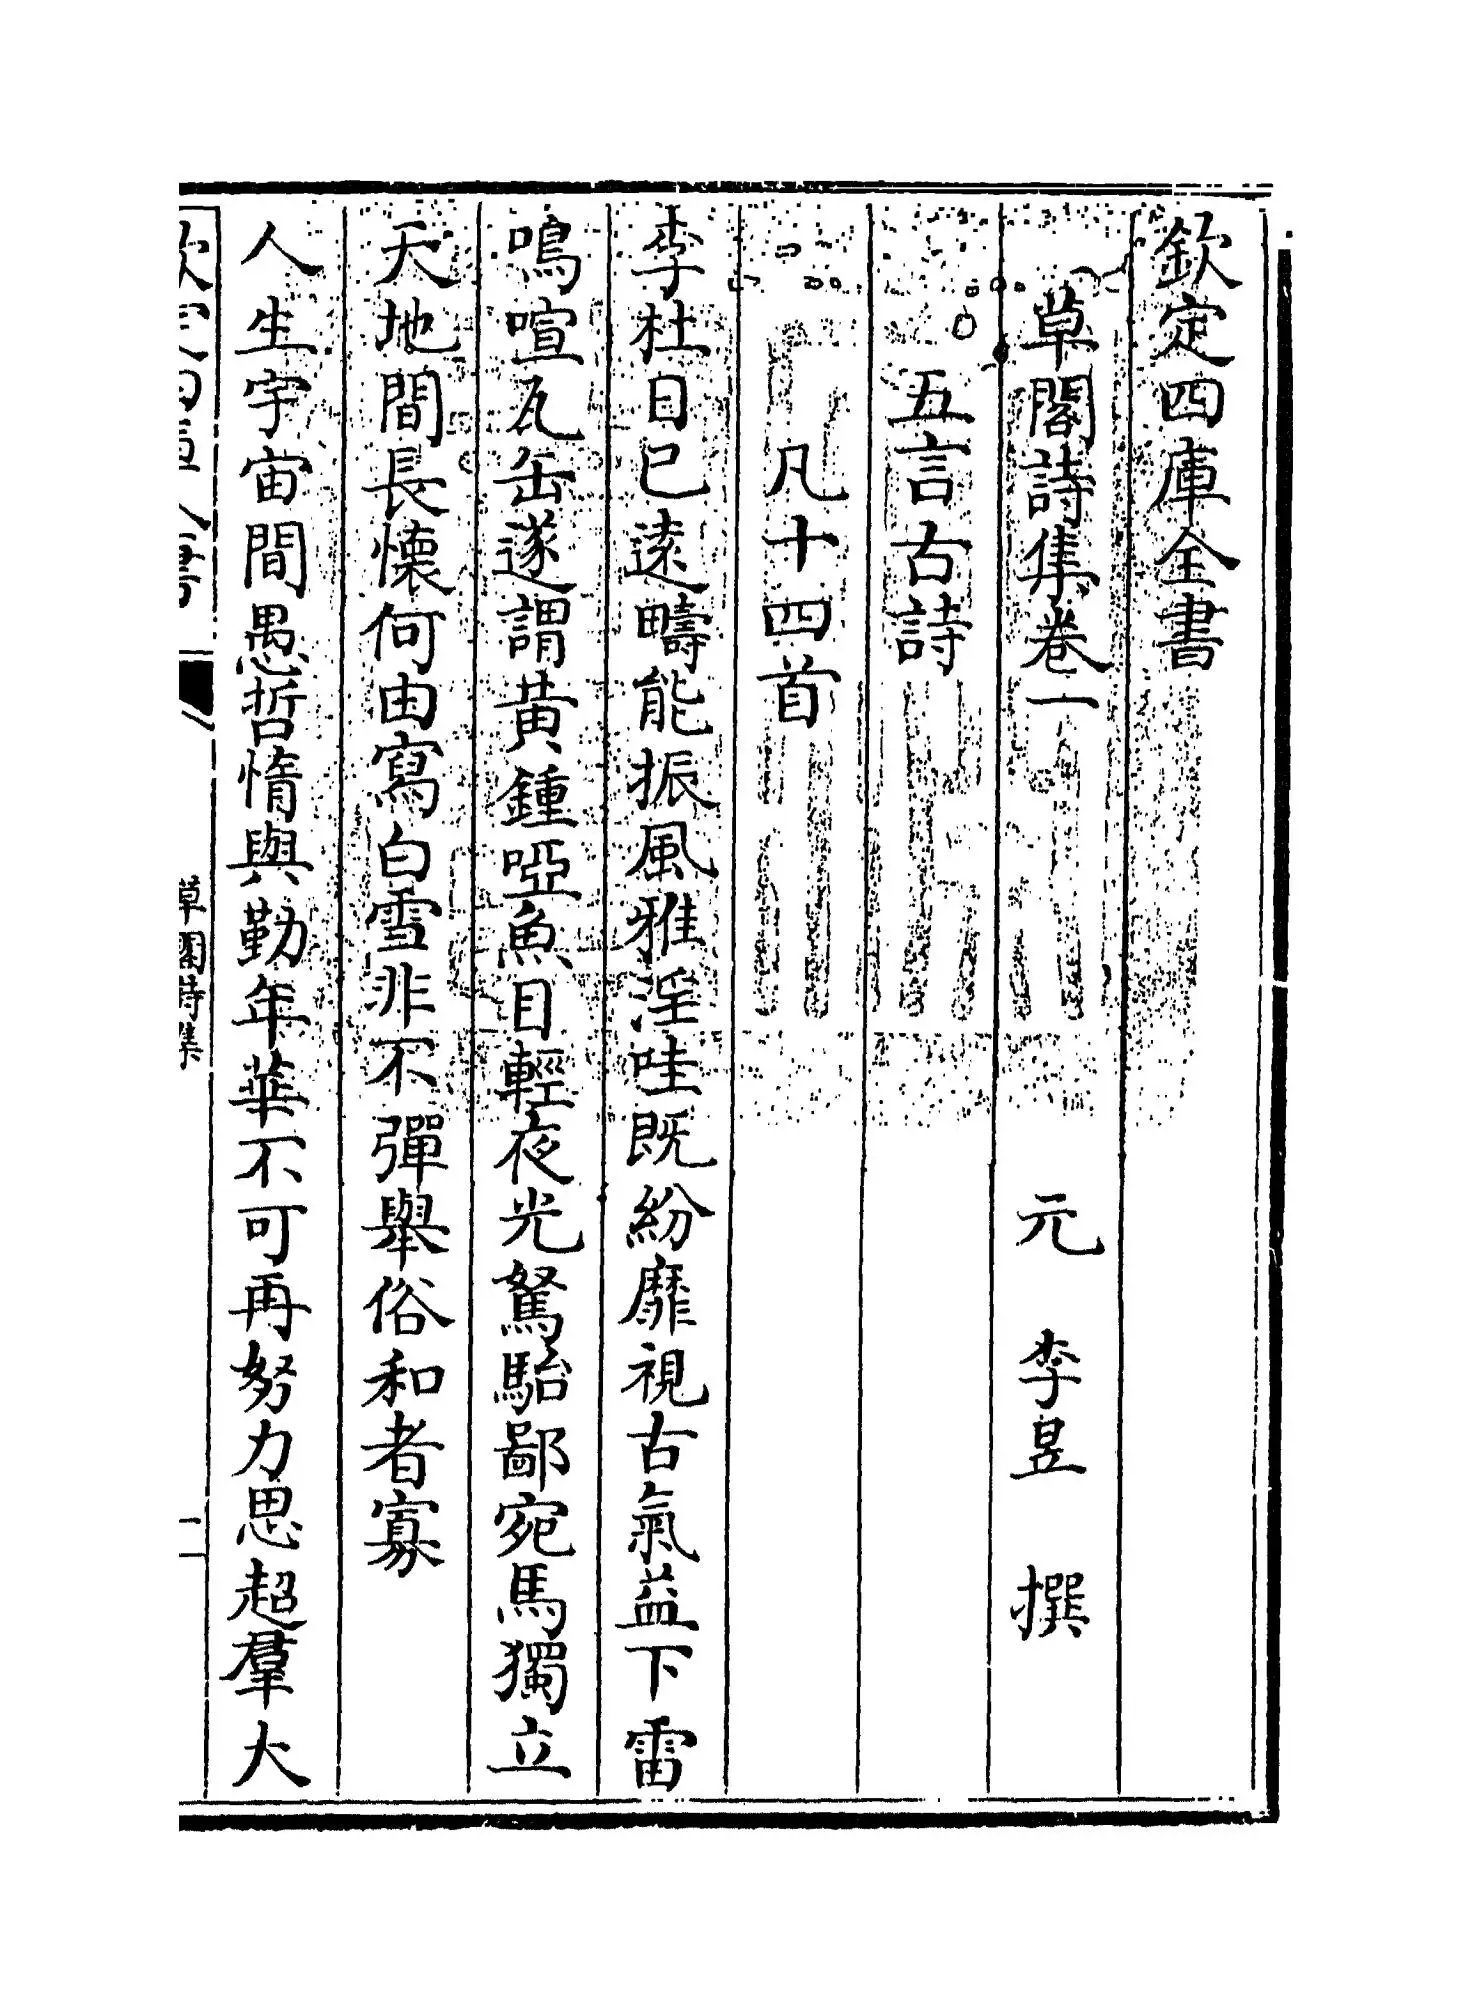 欽定四庫全書
草閣詩集卷一
元 李昱 撰
五言古詩
凡十四首
李杜日已遠疇能振風雅淫哇既紛靡視古氣益下雷
鳴喧瓦缶遂謂黃鍾啞魚目輕夜光駑駘鄙宛馬獨立
天地間長懷何由寫白雪非不彈舉俗和者寡
人生宇宙間愚哲惰與勤年華不可再努力思超羣大
欽定四庫全書
草閣詩集
一